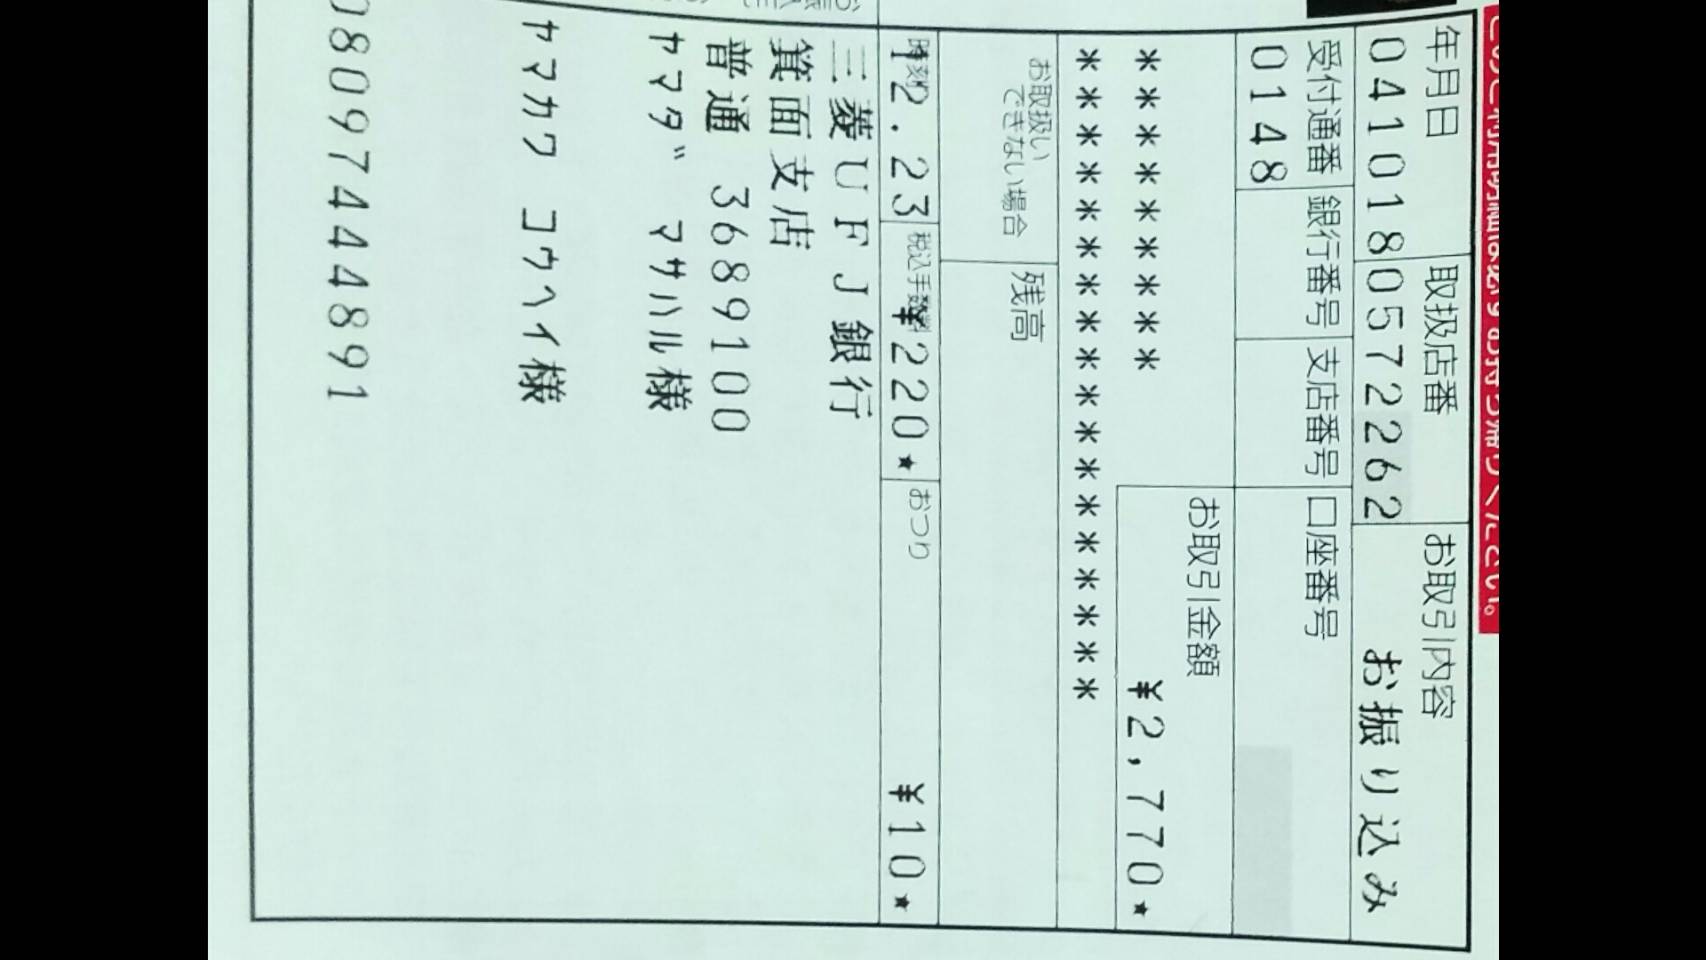 このご利用明細は必ずお持ち帰りください。
年月日 取扱店番 お取引内容
041018 0572262 お振り込み
受付通番 銀行番号 支店番号 口座番号
0148
お取引金額
******** ¥2,770★
******************
お取扱いできない場合 残高
時刻 税込手数料 おつり
12.23 ¥220★ ¥10★
三菱UFJ銀行
箕面支店
普通 3689100
ヤマダ マサハル様
ヤマカワ コウヘイ様
08097444891